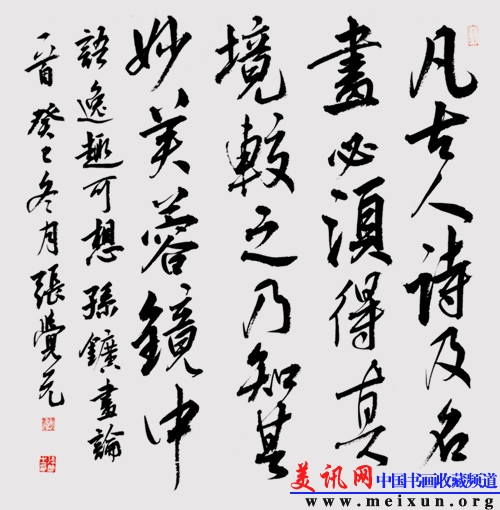 凡古人詩及名
畫必須得真
境較之乃知其
妙芙蓉鏡中
語逸趣可想孫鑛畫論
一首癸巳冬月張覺元
美讯网中国书画收藏频道
www.meixun.org